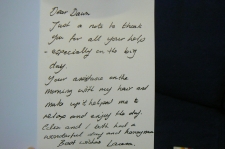 Dear Dawn,
Just a note to thank
you for all your help
- especially on the big
day.
Your assistance in the
morning with my hair and
make up helped me to
relax and enjoy the day.
and I both had a
wonderful day and honeymoon.
Best wishes